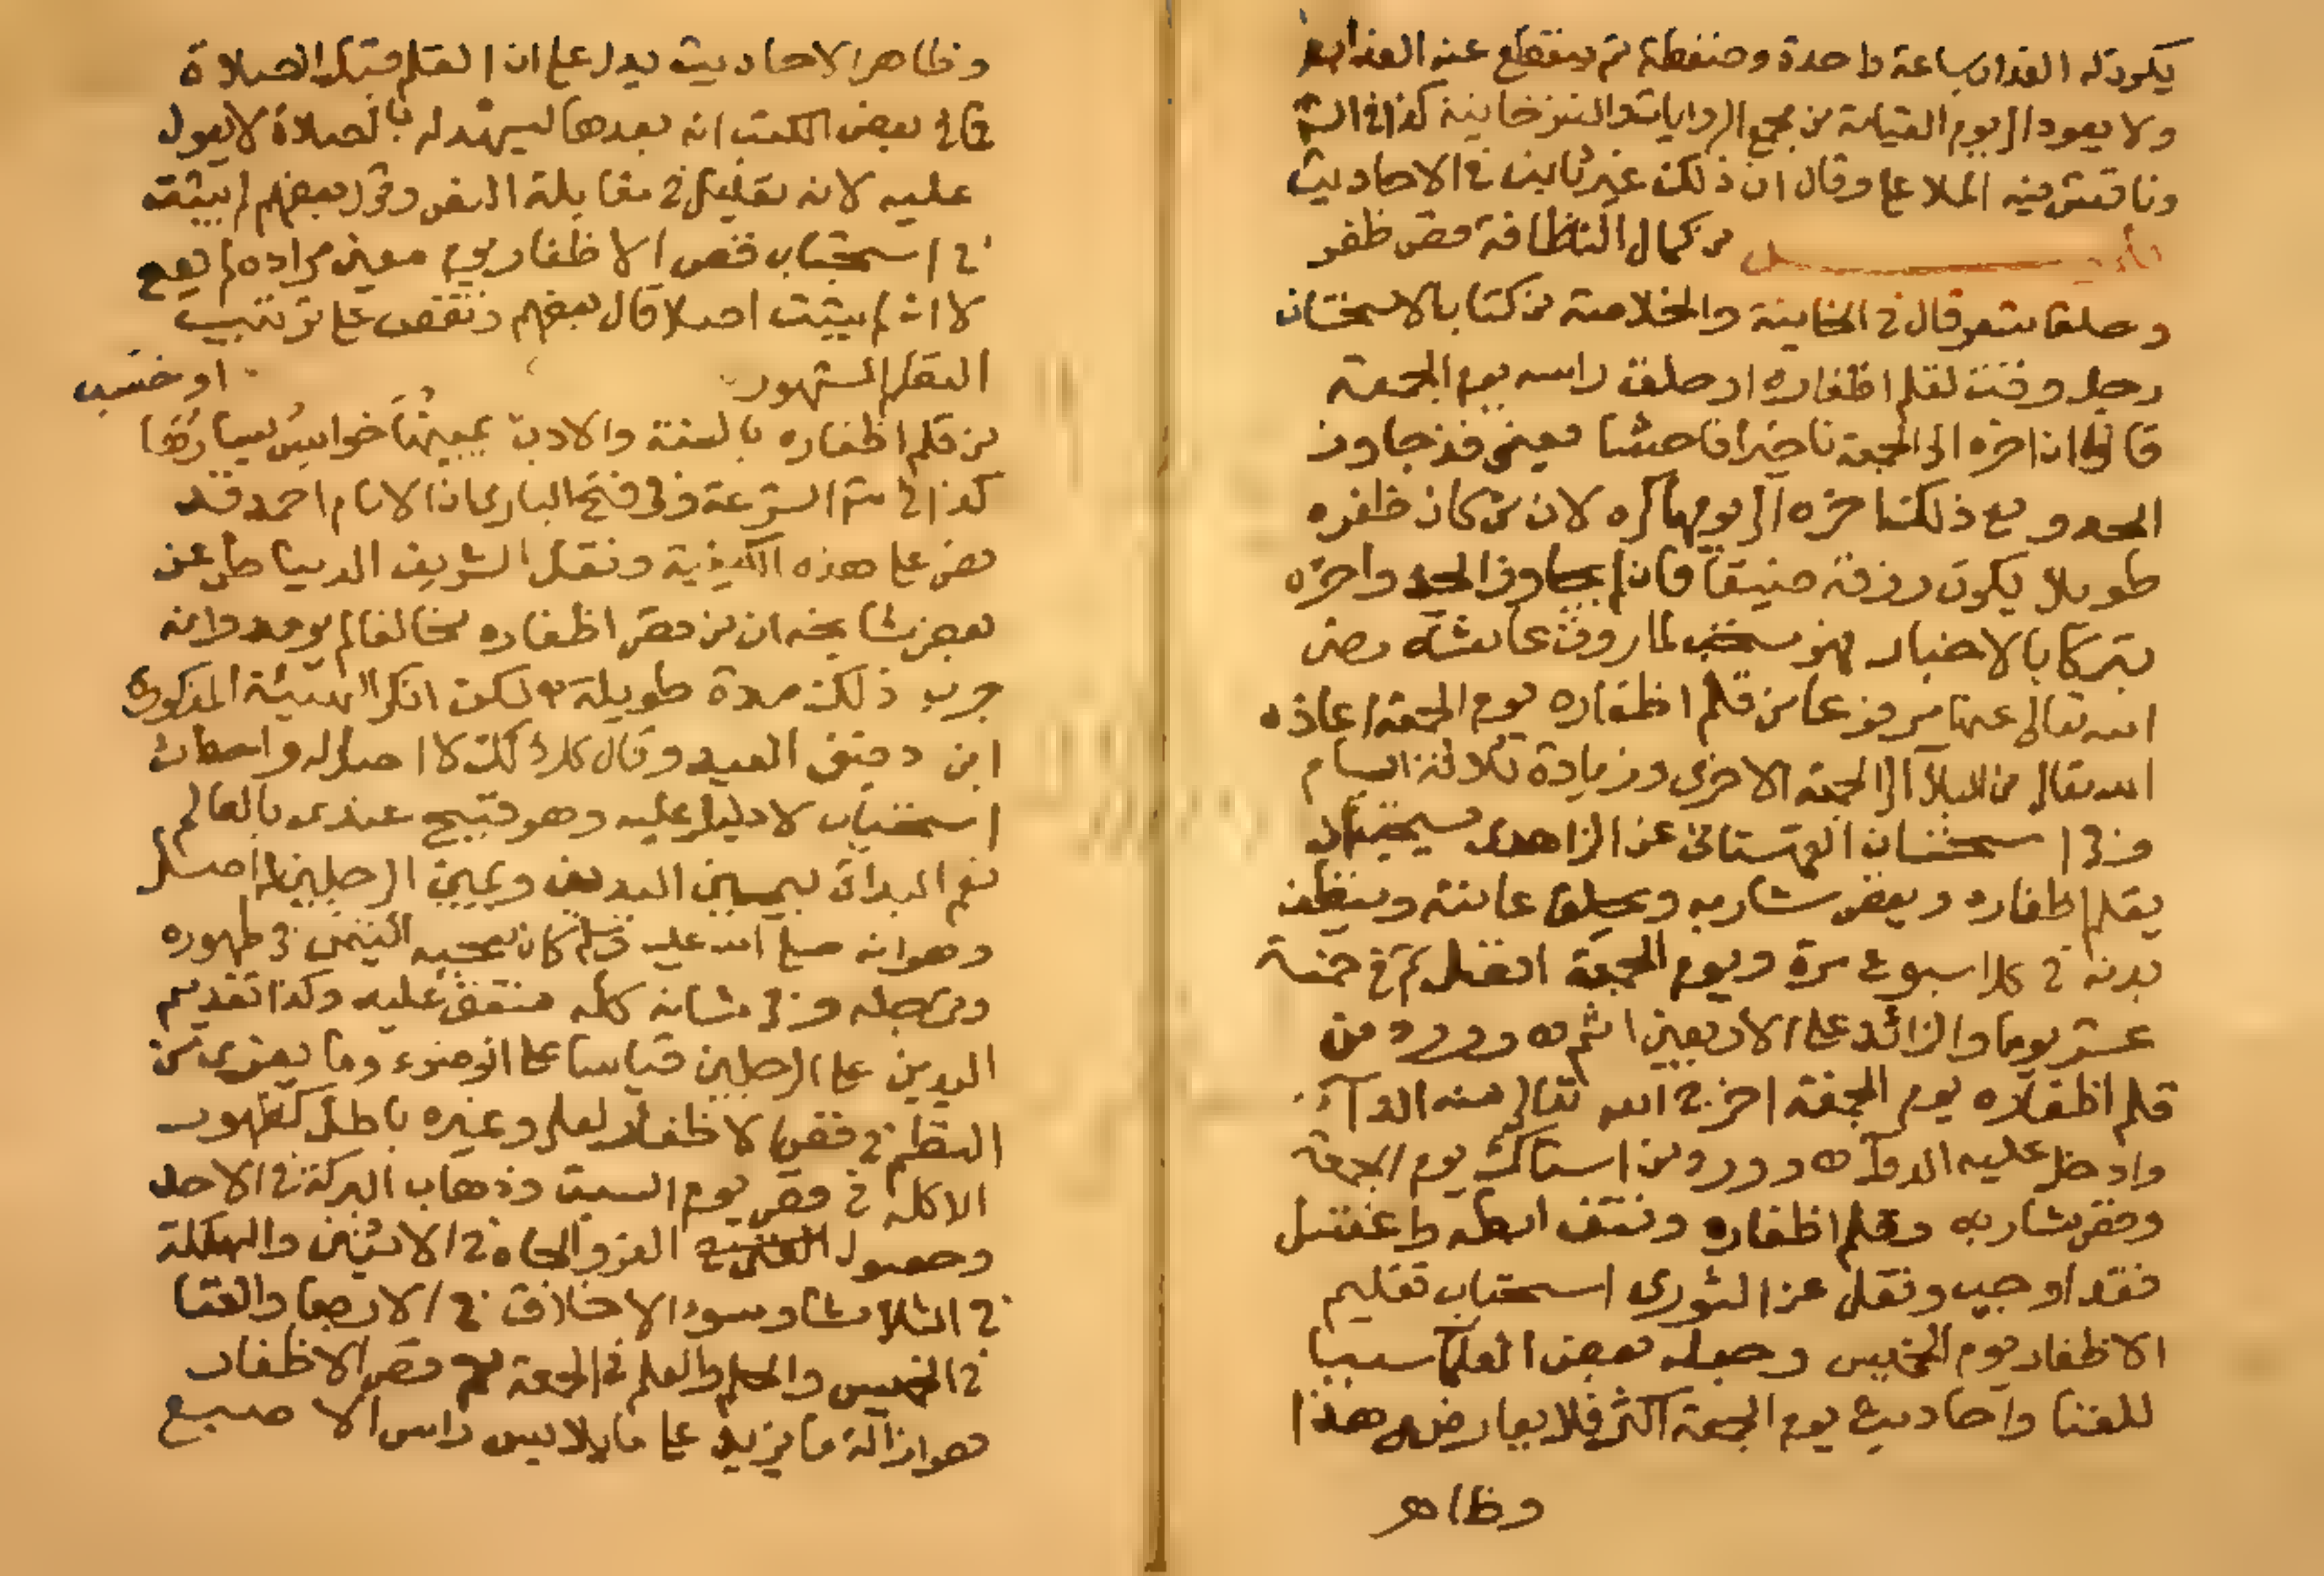 يكون له العذاب ساعة واحدة وضغطة ثم ينقطع عنه العذاب
ولا يعود الى يوم القيامة من مجمع الروايات والتتر خانية كذا في
وناقش فيه الملا على وقال ان ذلك غير ثابت في الاحاديث
من كمال النظافة قص ظفر
وحلق شعر قال في الخانية والخلاصة من كتاب الاستحسان
رجل وقت لقلم اظفاره او حلق راسه يوم الجمعة
قالوا ان اخره الى الجمعة تاخيرا فاحشا يعنى قد جاوز
الحد ومع ذلك اخره الى يومها كره لان من كان ظفره
طويلا يكون رزقه ضيقا فان لم يجاوز الحد واخره
تبركا بالاخبار فهو مستحب لما روت عائشة رضى
الله تعالى عنها مرفوعا من قلم اظفاره يوم الجمعة اعاذه
الله تعالى من البلآ الى الجمعة الاخرى وزيادة ثلاثة ايام
وفي استحسان القهستانى عن الزاهدى يستحب ان
يقلم اظفاره ويقص شاربه ويحلق عانته وينظف
بدنه في كل اسبوع مرة ويوم الجمعة افضل ثم في خمسة
عشر يوما والزائد على الاربعين اثم ه وورد من
قلم اظفاره يوم الجمعة اخرج الله تعالى منه الدآ
وادخل عليه الدوآ ه وورد من استاك يوم الجمعة
وقص شاربه وقلم اظفاره ونتف ابطه واغتسل
فقد اوجب ونقل عن الثورى استحباب تقليم
الاظفار يوم الخميس وجعله بعض العلمآ سببا
للغنا واحاديث يوم الجمعة اكثر فلا يعارض هذا
وظاهر
وظاهر الاحاديث يدل على ان القلم قبل الصلاة
فما في بعض الكتب انه بعدها ليشهد له بالصلاة لا يعول
عليه لانه تعليل في مقابلة النص وقول بعضهم لم يثبت
في استحباب قص الاظفار يوم معين مراده لم يصح
لا انه لم يثبت اصلا قال بعضهم وتقص على ترتيب
النقل المشهور او خسب
من قلم اظفاره بالسنة والادب يمينها خوابس يسارها
كذا في شرح الشرعة وفي فتح البارى ان الامام احمد قد
نص على هذه الكيفية ونقل الشريف الدمياطى عن
بعض مشايخه ان من قص اظفاره مخالفا لم يرمد وانه
جرب ذلك مدة طويلة لكن انكر الهيئة المذكورة
ابن دقيق العيد وقال كل ذلك لا اصل له واحداث
استحباب لا دليل عليه وهو قبيح عندى بالعالم
نعم البدات بيمين اليدين ويمين الرجلين لها اصل
وهو انه صلى الله عليه وسلم كان يعجبه التيمن في طهوره
وترجله وفي شانه كله متفق عليه وكذا تقديم
اليدين على الرجلين قياسا على الوضوء وما يعزى من
النظم في قص الاظفار لعلى وغيره باطل كظهور
الاكلة في قص يوم السبت وذهاب البركة في الاحد
وحصول العز والجاه في الاثنين والهلكة
في الثلاثا وسوء الاخلاق في الاربعا والغنا
في الخميس والحلم والعلم في الجمعة ثم قص الاظفار
هو ازالة ما يزيد على ما يلابس راس الاصبع